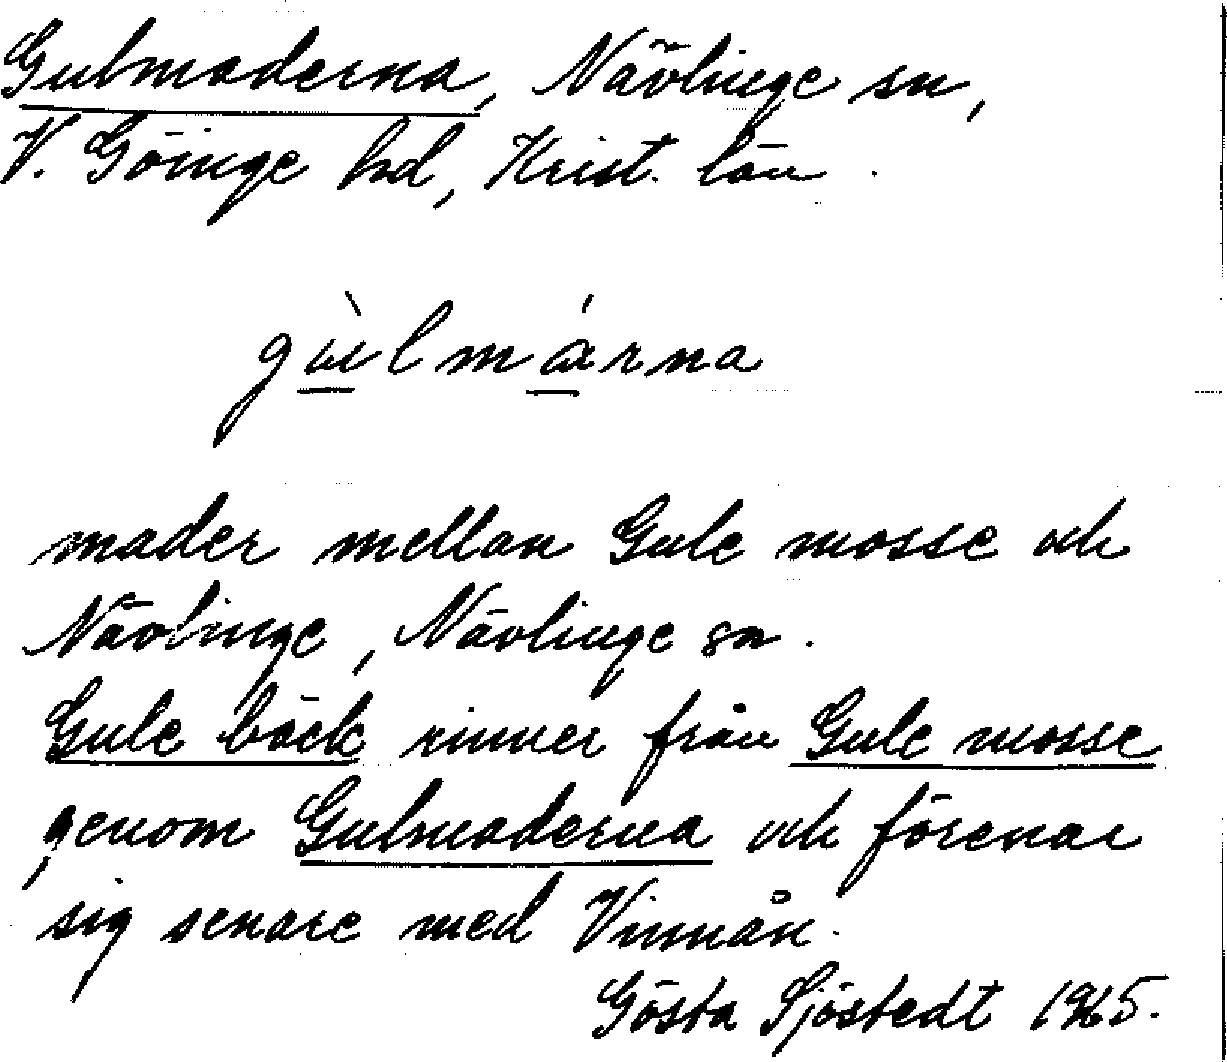 Gulmaderna, Nävlinge sn,
V. Göinge hd, Krist. län.
gùlmárna
mader mellan Gule mosse och
Nävlinge, Nävlinge sn.
Gule bäck rinner från Gule mosse
genom Gulmaderna och förenar
sig senare med Vinnån.
Gösta Sjöstedt 1965.